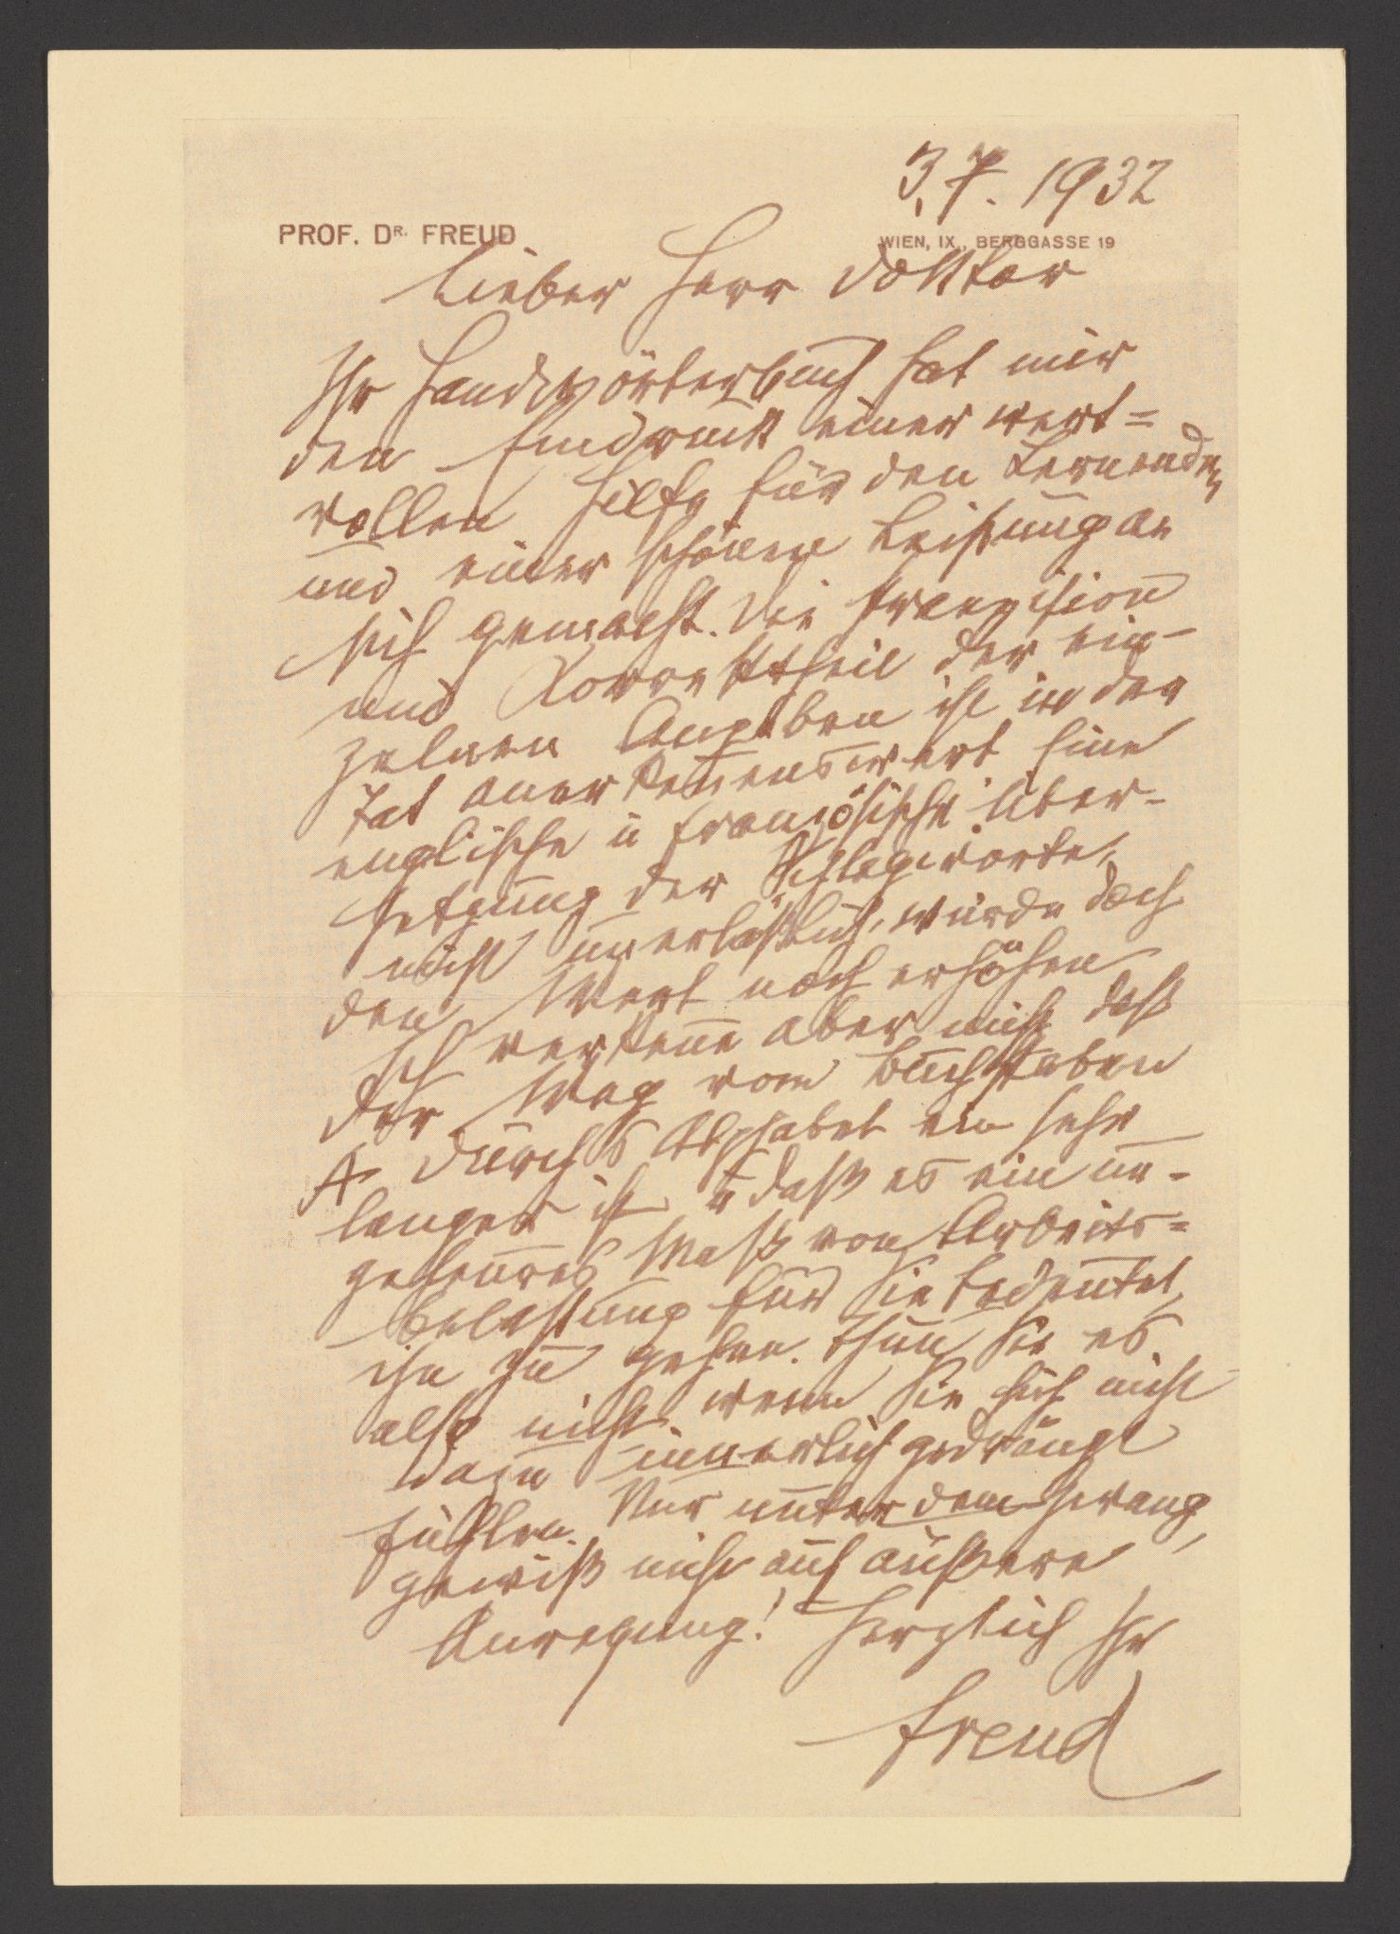 3. 7. 1932
PROF. DR. FREUD
WIEN, IX., BERGGASSE 19
Lieber Herr Doktor
Ihr Handwörterbuch hat mir
den Eindruck einer wert=
vollen Hilfe für den Lernenden
und einer schönen Leistung an
sich gemacht. Die Präzision
und Korrektheit der ein-
zelnen Angaben ist in der
Tat anerkennenswert. Eine
englische u französische Über-
setzung der Schlagworte,
nicht unerläßlich, würde doch
den Wert noch erhöhen
Ich verkenne aber nicht daß
der Weg vom Buchstaben
A durchs Alphabet ein sehr
langer ist u daß es ein un-
geheures Maß von Arbeits=
belastung für Sie bedeutet,
ihn zu gehen. Thun Sie es
also nicht wenn Sie sich nicht
dazu innerlich gedrängt
fühlen. Nur unter dem Zwang,
gewiß nicht auf äußere
Anregung! Herzlich Ihr
Freud